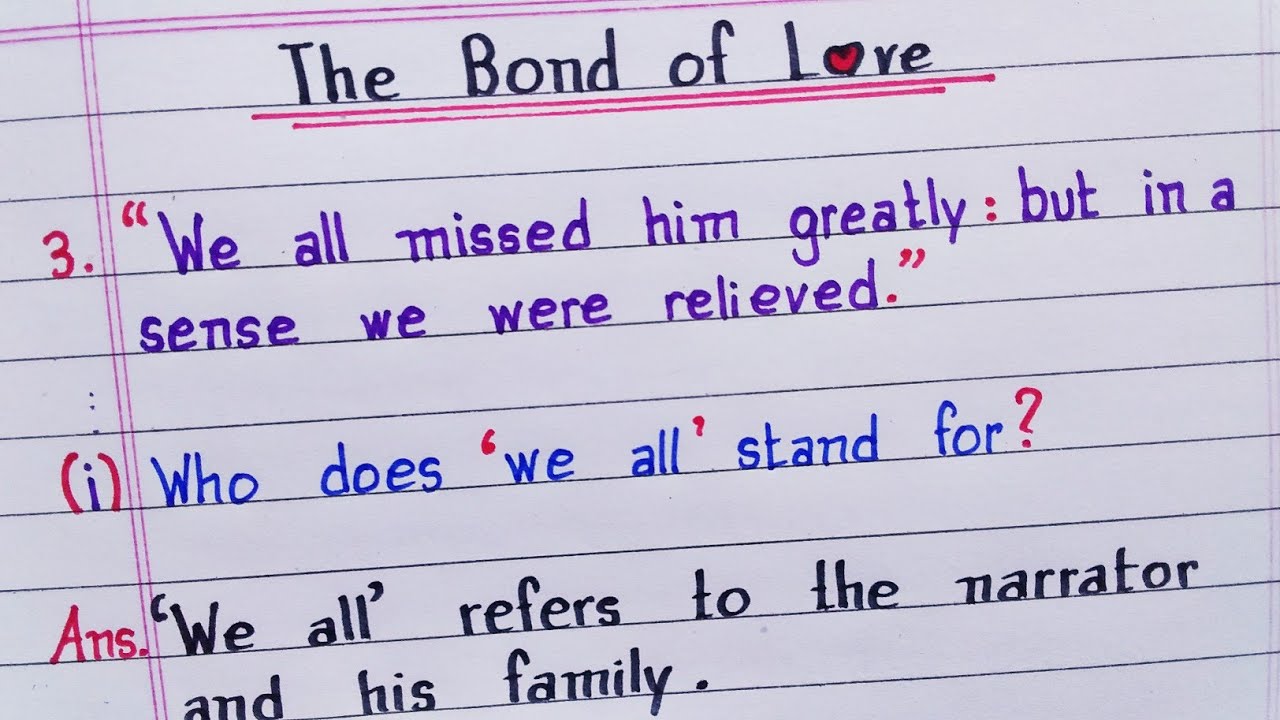 The Bond of Love
3. “We all missed him greatly: but in a
sense we were relieved.”
(i) Who does ‘we all’ stand for?
Ans. ‘We all’ refers to the narrator
and his family.